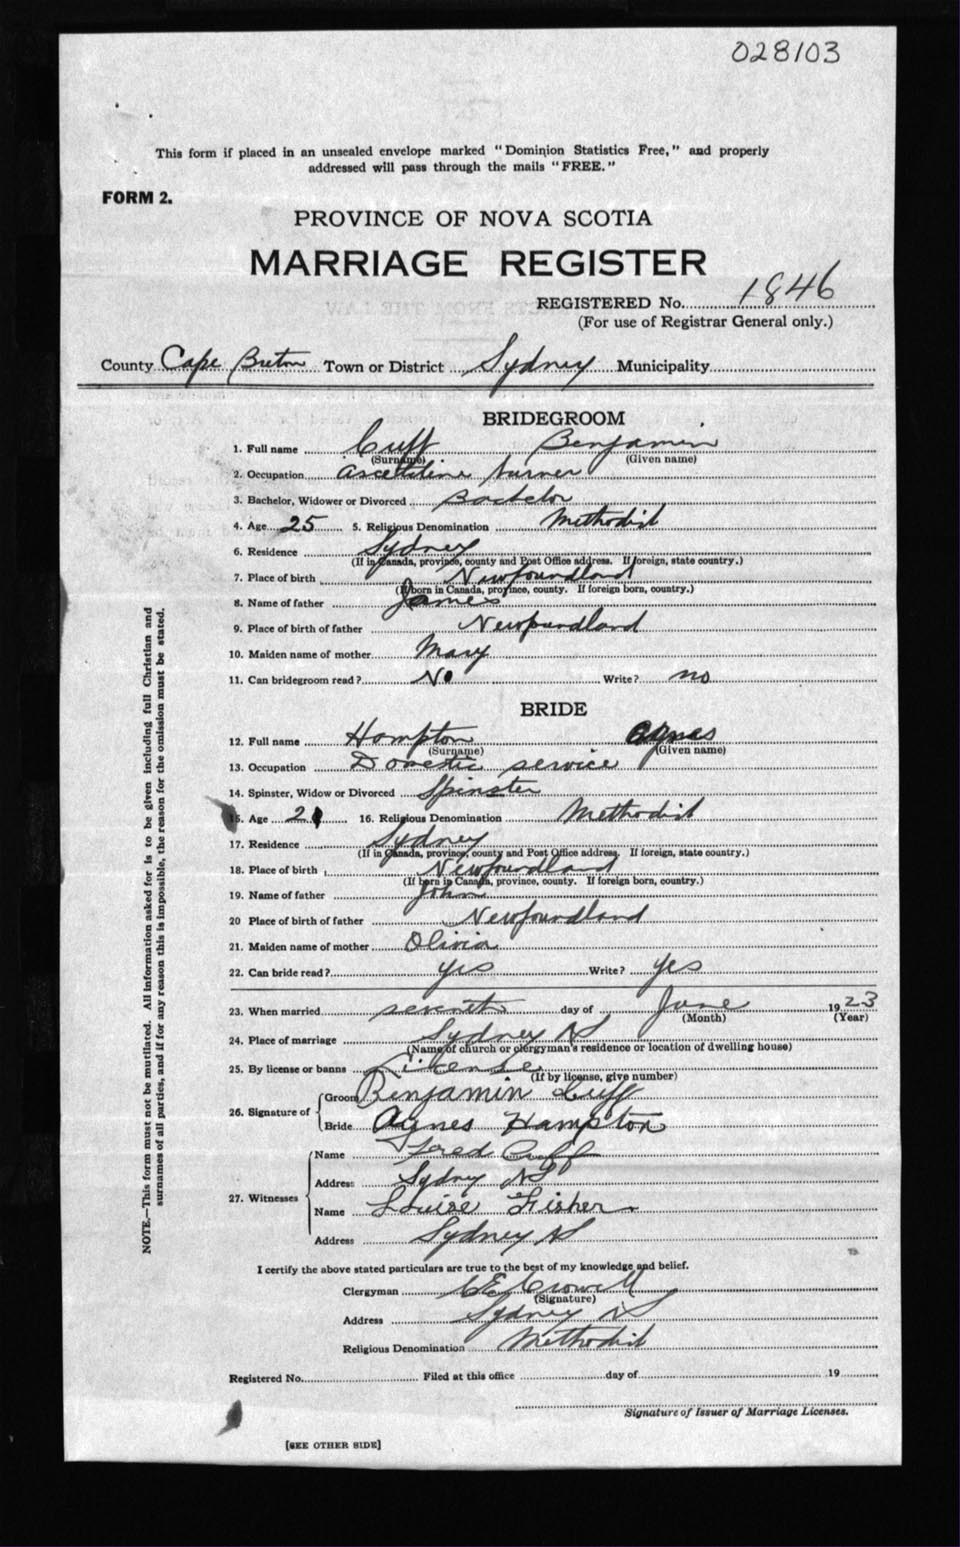 028103
This form if placed in an unsealed envelope marked "Dominion Statistics Free," and properly
addressed will pass through the mails "FREE."
FORM 2.
PROVINCE OF NOVA SCOTIA
MARRIAGE REGISTER
REGISTERED No. 1846
(For use of Registrar General only.)
County Cape Breton Town or District Sydney Municipality
BRIDEGROOM
1. Full name Cuff Benjamen
(Surname) (Given name)
2. Occupation turner
3. Bachelor, Widower or Divorced Bachelor
4. Age 25 5. Religious Denomination Methodist
6. Residence Sydney
(If in Canada, province, county and Post Office address. If foreign, state country.)
7. Place of birth Newfoundland
(If born in Canada, province, county. If foreign born, country.)
8. Name of father James
9. Place of birth of father Newfoundland
10. Maiden name of mother Mary
11. Can bridegroom read? No Write? no
BRIDE
12. Full name Hampton Agnes
(Surname) (Given name)
13. Occupation Domestic service
14. Spinster, Widow or Divorced Spinster
15. Age 21 16. Religious Denomination Methodist
17. Residence Sydney
(If in Canada, province, county and Post Office address. If foreign, state country.)
18. Place of birth Newfoundland
(If born in Canada, province, county. If foreign born, country.)
19. Name of father John
20 Place of birth of father Newfoundland
21. Maiden name of mother Olivia
22. Can bride read? yes Write? yes
23. When married seventh day of June 1923
(Month) (Year)
24. Place of marriage Sydney NS
(Name of church or clergyman's residence or location of dwelling house)
25. By license or banns License
(If by license, give number)
26. Signature of Groom Benjamin Cuff
Bride Agnes Hampton
27. Witnesses Name Fred Cuff
Address Sydney NS
Name Louise Fisher
Address Sydney NS
I certify the above stated particulars are true to the best of my knowledge and belief.
Clergyman C E Crowell
(Signature)
Address Sydney NS
Religious Denomination Methodist
Registered No. Filed at this office day of 19
Signature of Issuer of Marriage Licenses.
[SEE OTHER SIDE]
NOTE.—This form must not be mutilated. All information asked for is to be given including full Christian and
surnames of all parties, and if for any reason this is impossible, the reason for the omission must be stated.